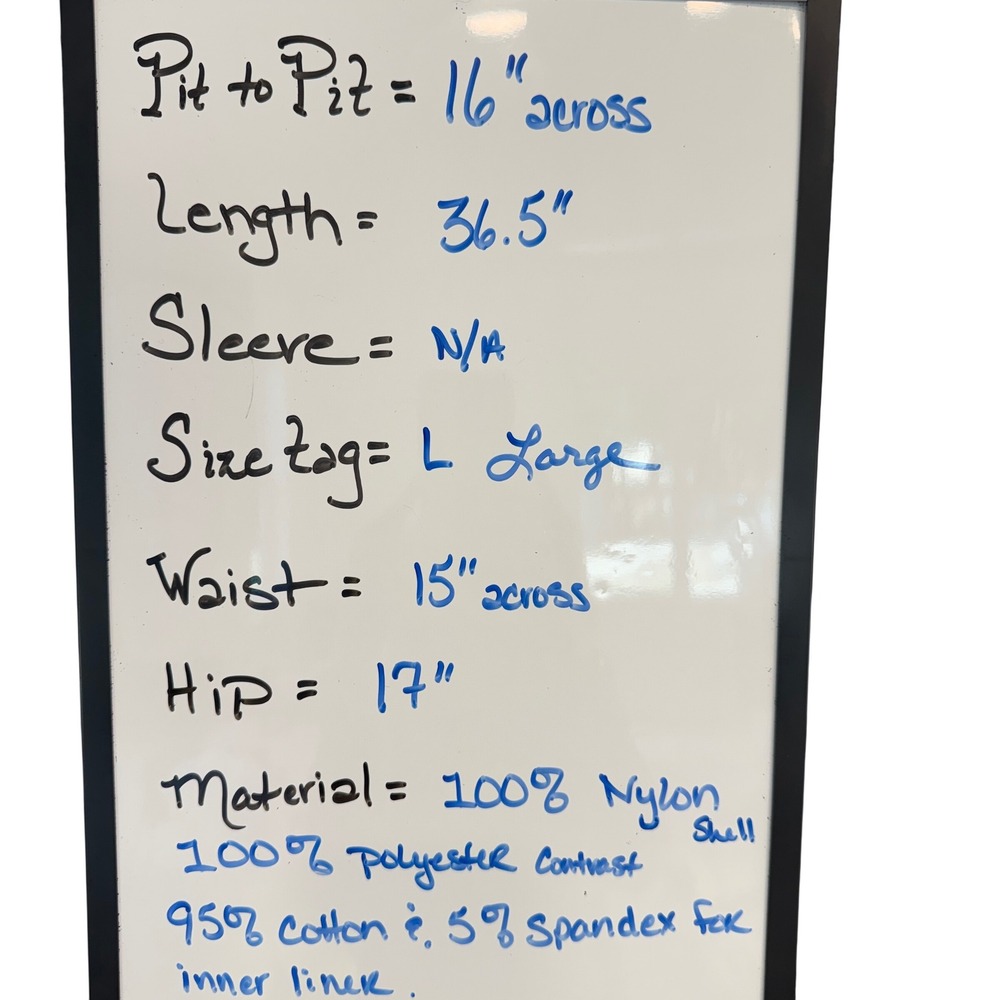 Pit to Pit = 16" across
Length = 36.5"
Sleeve = N/A
Size tag = L Large
Waist = 15" across
Hip = 17"
Material = 100% Nylon
Shell
100% polyester Contrast
95% Cotton & 5% Spandex for
inner liner.